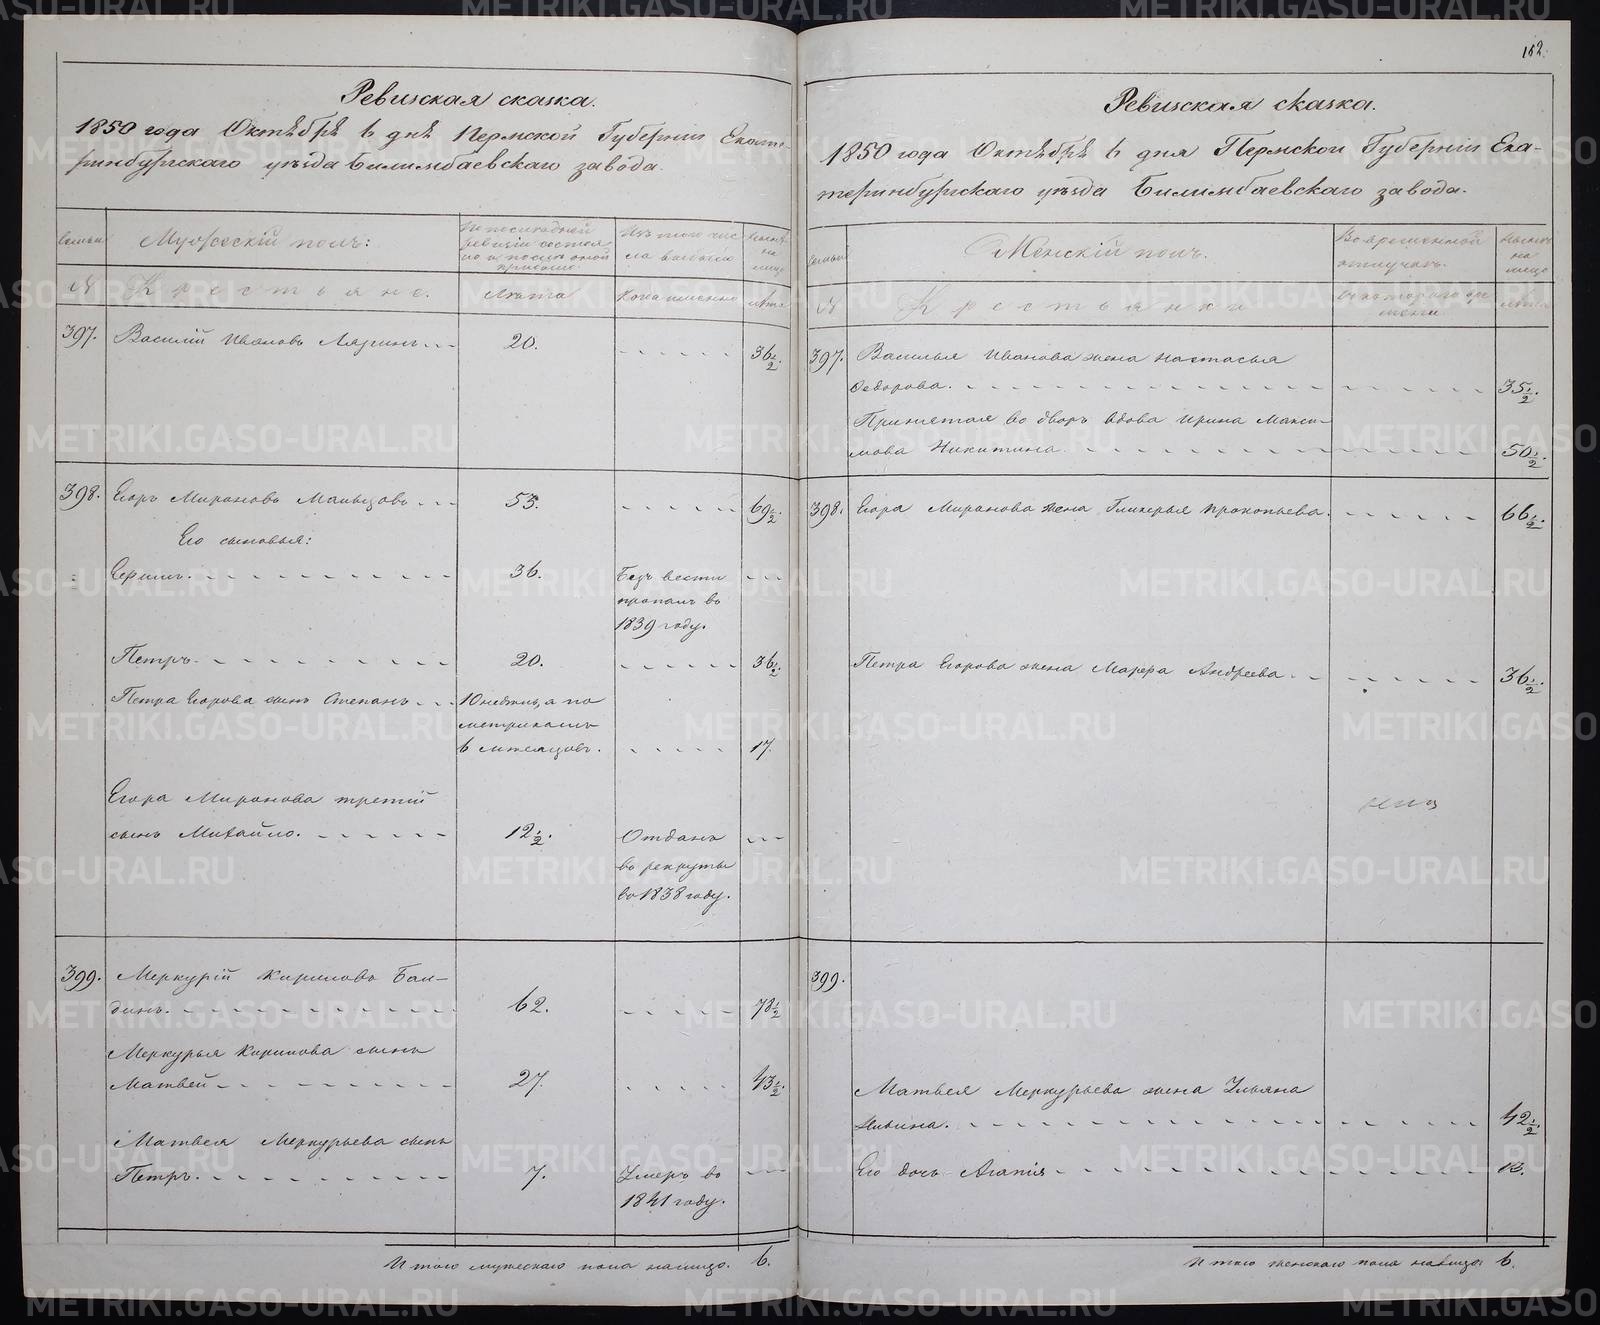 152.
Ревизская сказка.
1850 года Октября 6 дня Пермской Губерніи Екате-
ринбургскаго уѣзда Билимбаевскаго завода.
Семьи
Мужескій полъ:
По последней
ревизіи состоя
ло и послѣ оной
прибыло
Изъ того чис
ла выбыло
Нынѣ
на
лицо
№
Крестьяне.
Лѣта
Когда именно
Лѣта
397.
Василій Ивановъ Ляринъ
20.
36 1/2.
398.
Егоръ Мироновъ Мальцовъ
53.
69 1/2.
Его сыновья:
36.
Безъ вести
пропалъ въ
1839 году.
Петръ
20.
36 1/2.
Петра Егорова сынъ Степанъ
10 недель, а по
метрикамъ
6 месяцовъ.
17.
Егора Миронова третій
сынъ Михайло.
12 1/2.
Отданъ
въ рекруты
въ 1838 году.
399.
Меркурій Кириловъ Бал-
динъ.
62.
78 1/2
Меркурья Кирилова сынъ
Матвей
27.
43 1/2.
Матвея Меркурьева сынъ
Петръ.
7.
Умеръ въ
1841 году.
Итого мужескаго пола налицо. 6.
Ревизская сказка.
1850 года Октября 6 дня Пермской Губерніи Ека-
теринбургскаго уѣзда Билимбаевскаго завода.
Семьи
Женскій полъ.
Во временной
отлучкѣ.
Нынѣ
на
лицо
№
Крестьянки
Съ котораго вре
мени
Лѣта
397.
Василья Иванова жена Настасья
Федорова.
35 1/2.
Принятая во дворъ вдова Ирина Макси-
мова Никитина.
50 1/2.
398.
Егора Миронова жена Гликерья Прокопьева.
66 1/2.
Петра Егорова жена Марфа Андреева
36 1/2.
399.
Матвея Меркурьева жена Ульяна
Ильина.
42 1/2.
Его дочь Агапія
12.
Итого женскаго пола налицо 6.
METRIKI.GASO-URAL.RU